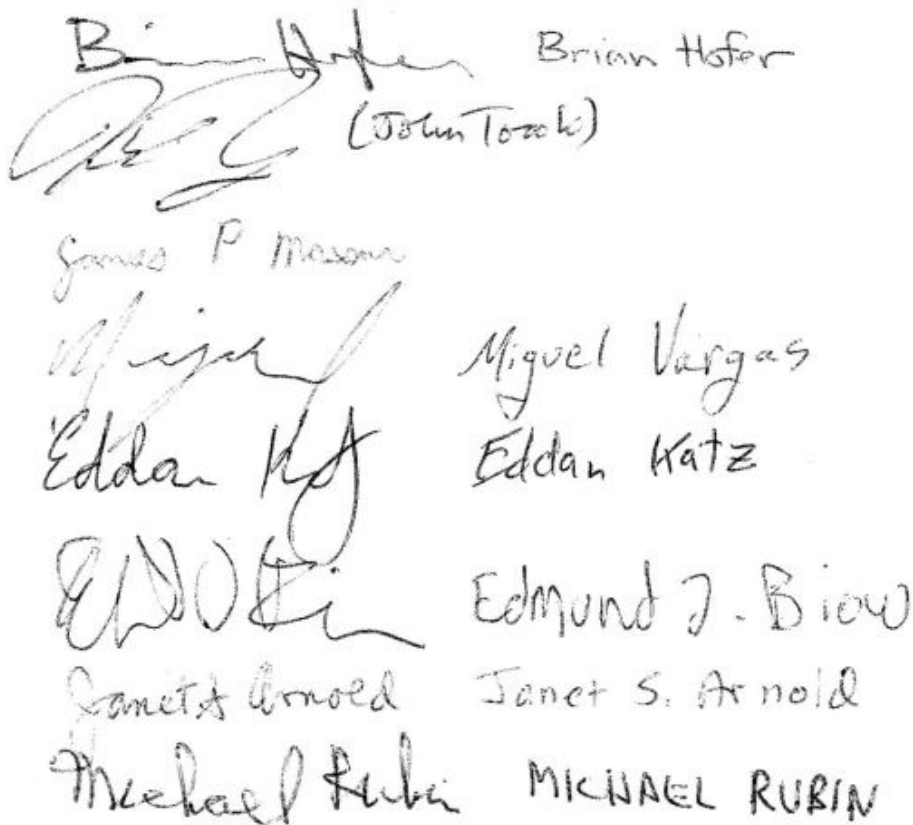 Brian Hofer Brian Hofer
(John Torok)
James P Mason
Miguel Vargas
Eddan Katz Eddan Katz
Edmund J. Biow
Janet S Arnold Janet S. Arnold
Michael Rubin MICHAEL RUBIN